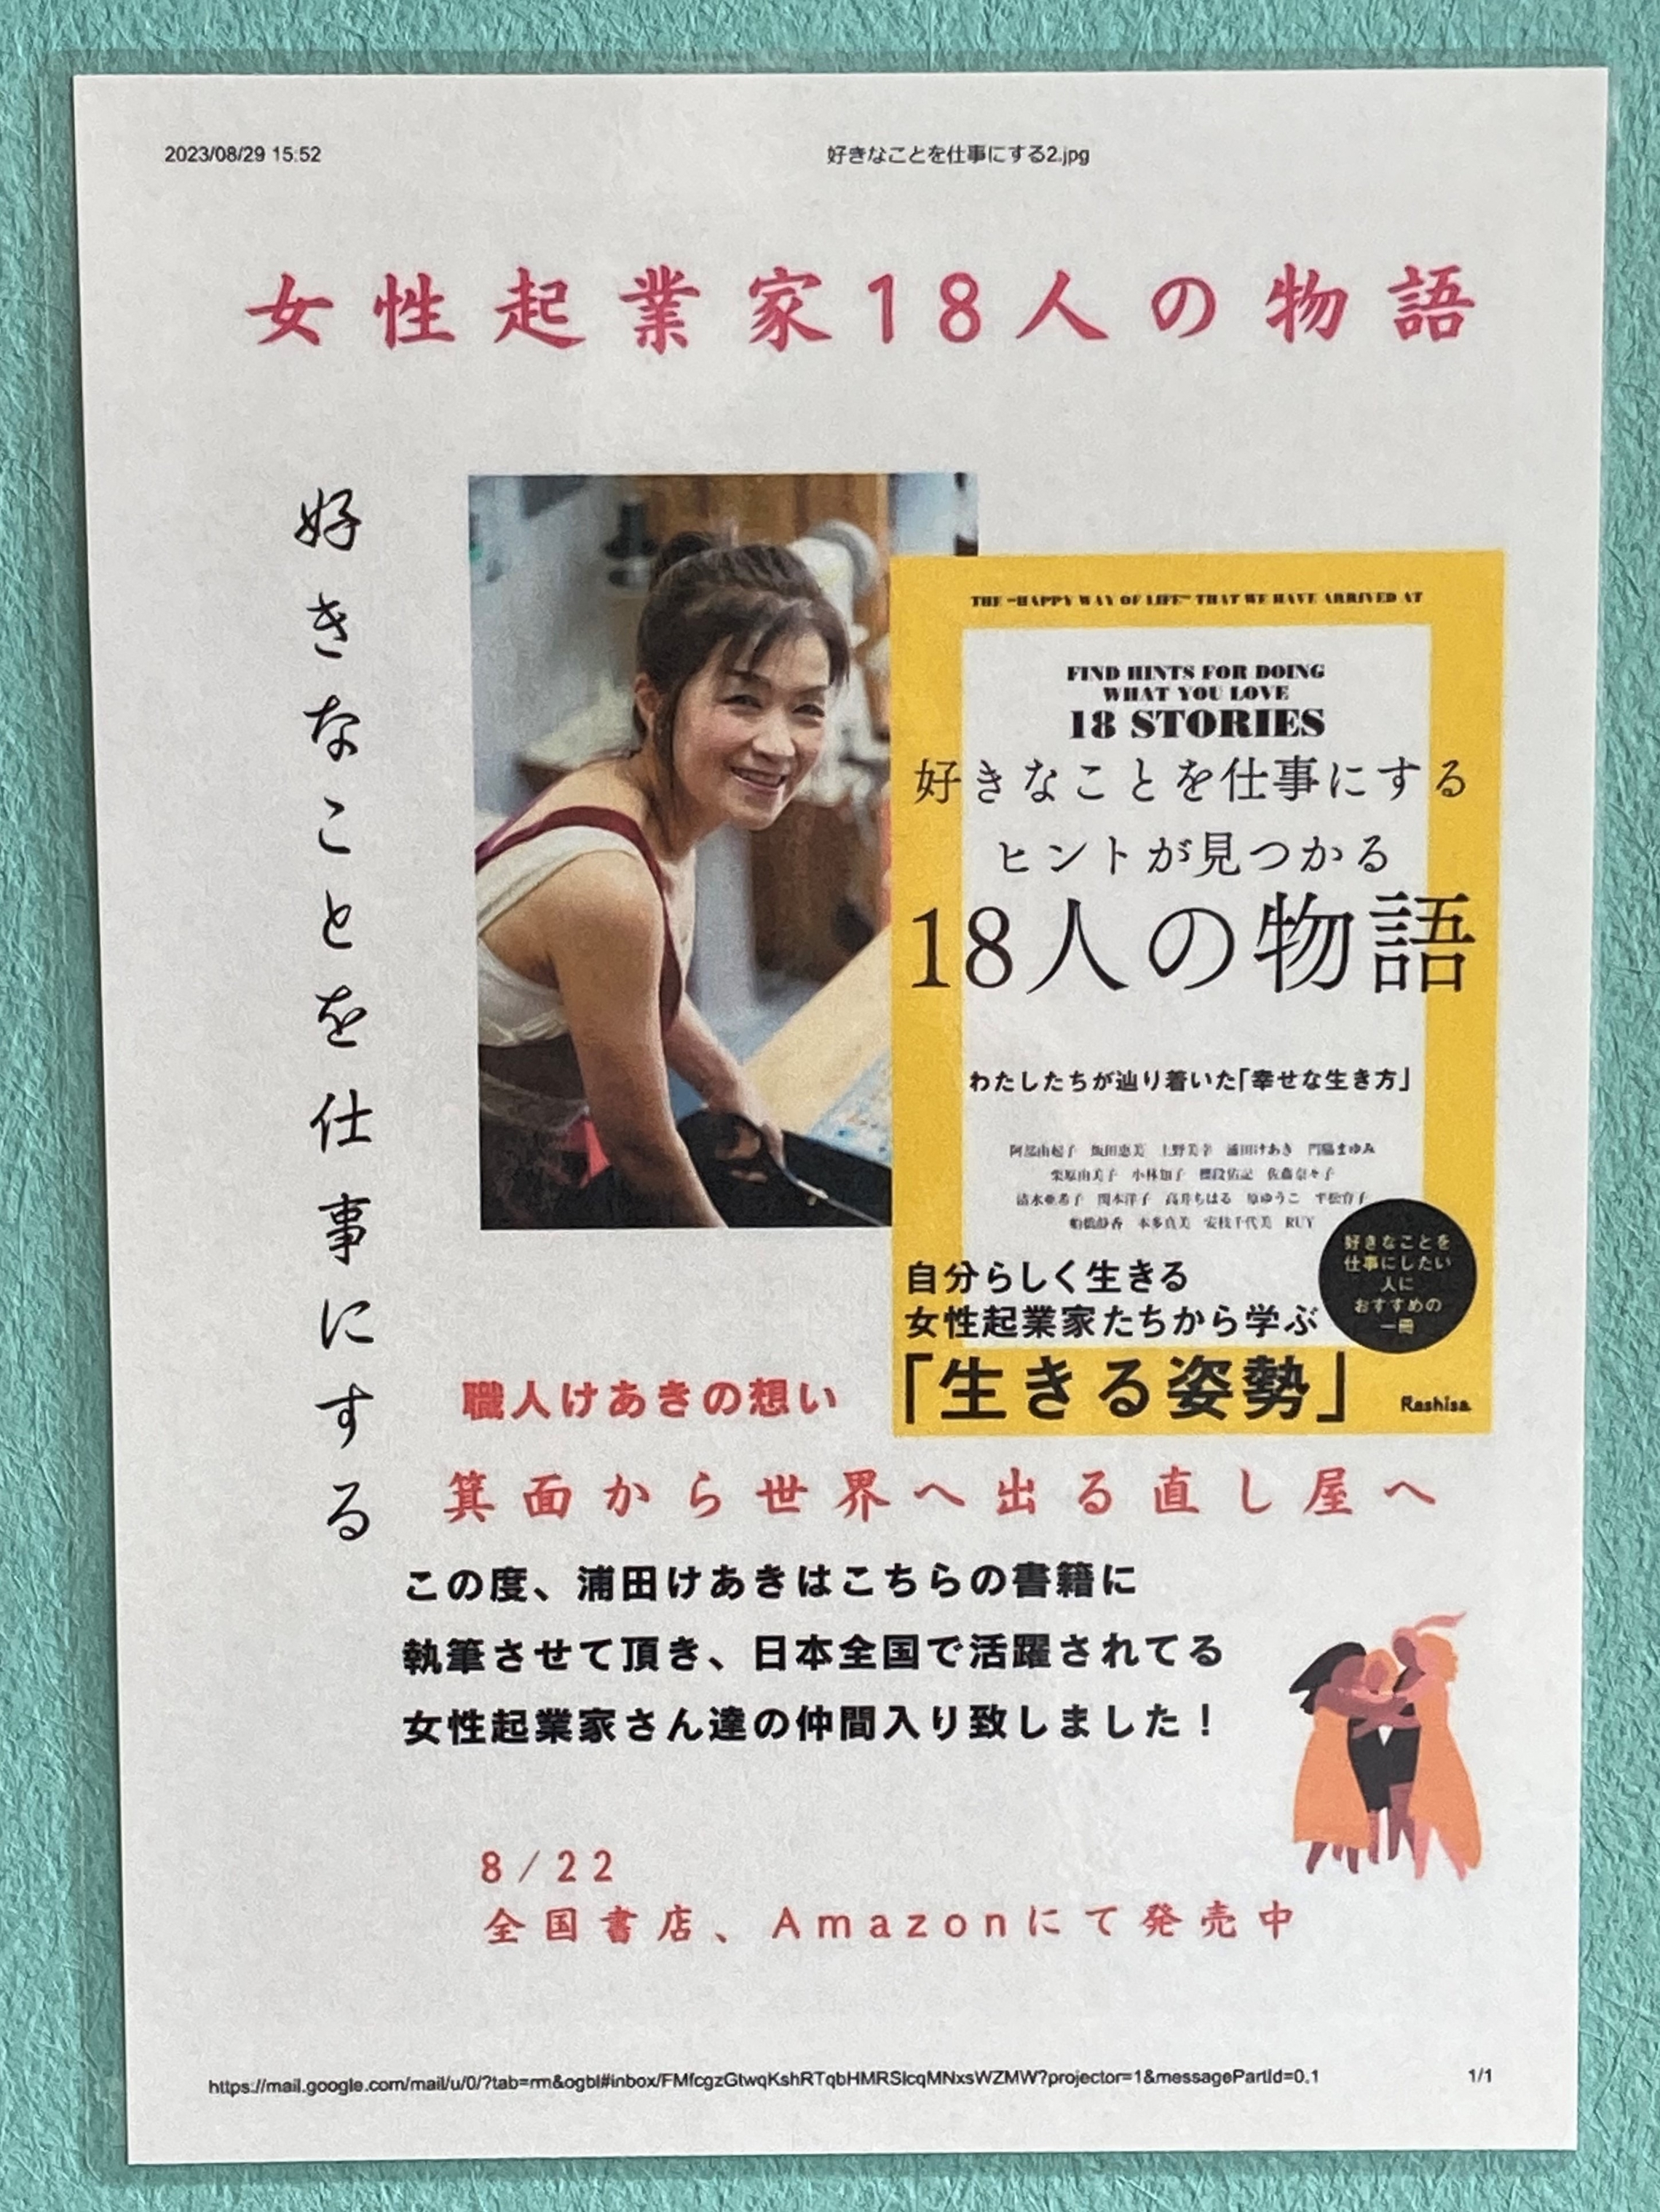 2023/08/29 15:52
好きなことを仕事にする2.jpg
女性起業家18人の物語
好きなことを仕事にする
THE "HAPPY WAY OF LIFE" THAT WE HAVE ARRIVED AT
FIND HINTS FOR DOING
WHAT YOU LOVE
18 STORIES
好きなことを仕事にする
ヒントが見つかる
18人の物語
わたしたちが辿り着いた「幸せな生き方」
阿部由起子 飯田恵美 上野美幸 浦田けあき 門脇まゆみ
栗原由美子 小林知子 櫻段佑記 佐藤奈々子
清水亜希子 関本洋子 高井ちはる 原ゆうこ 平松育子
船橋静香 本多真美 安枝千代美 RUY
好きなことを
仕事にしたい
人に
おすすめの
一冊
自分らしく生きる
女性起業家たちから学ぶ
「生きる姿勢」
Rashisa
職人けあきの想い
箕面から世界へ出る直し屋へ
この度、浦田けあきはこちらの書籍に
執筆させて頂き、日本全国で活躍されてる
女性起業家さん達の仲間入り致しました！
8/22
全国書店、Amazonにて発売中
https://mail.google.com/mail/u/0/?tab=rm&ogbl#inbox/FMfcgzGtwqKshRTqbHMRSlcqMNxsWZMW?projector=1&messagePartId=0.1
1/1